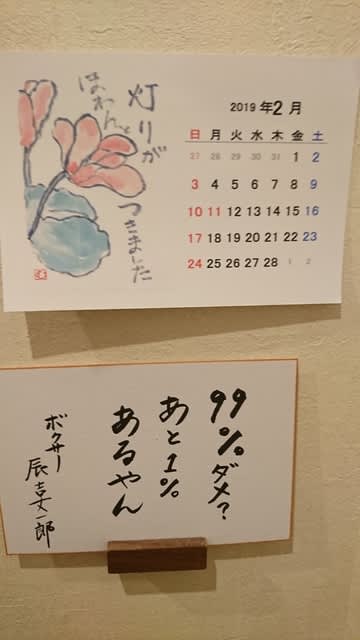 灯りが
ほわんと
つきました
2019年2月
日 月 火 水 木 金 土
27 28 29 30 31 1 2
3 4 5 6 7 8 9
10 11 12 13 14 15 16
17 18 19 20 21 22 23
24 25 26 27 28 1 2
99%ダメ?
あと1%
あるやん
ボクサー
辰吉丈一郎